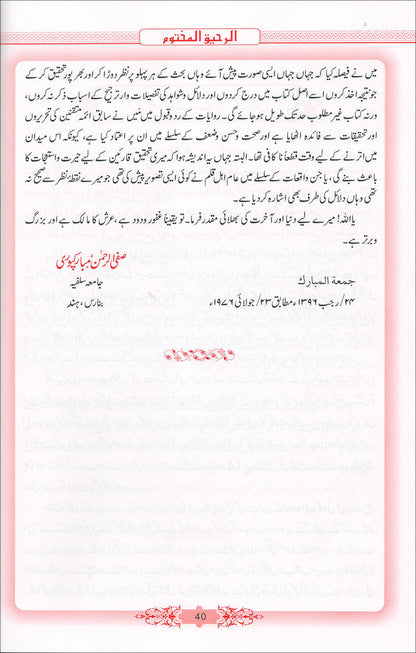 الرحیق المختوم
میں نے فیصلہ کیا کہ جہاں جہاں ایسی صورت پیش آئے وہاں بحث کے ہر پہلو پر نظر دوڑا کر اور بھر پور تحقیق کر کے
جو نتیجہ اخذ کروں اسے اصل کتاب میں درج کر دوں اور دلائل و شواہد کی تفصیلات اور ترجیح کے اسباب ذکر نہ کروں،
ورنہ کتاب غیر مطلوب حد تک طویل ہو جائے گی۔ روایات کے رد و قبول میں میں نے سابق ائمہ متقنین کی تحریروں
اور تحقیقات سے فائدہ اٹھایا ہے اور صحت و حسن و ضعف کے سلسلے میں ان پر اعتماد کیا ہے، کیونکہ اس میدان
میں اترنے کے لیے وقت قطعًا ناکافی تھا۔ البتہ جہاں یہ اندیشہ ہوا کہ میری تحقیق قارئین کے لیے حیرت و استعجاب کا
باعث بنے گی، یا جن واقعات کے سلسلے میں عام اہل قلم نے کوئی ایسی تصویر پیش کی تھی جو میرے نقطۂ نظر سے صحیح نہ
تھی وہاں دلائل کی طرف بھی اشارہ کر دیا ہے۔
یا اللہ! میرے لیے دنیا اور آخرت کی بھلائی مقدر فرما۔ تو یقیناً غفور و ودود ہے، عرش کا مالک ہے اور بزرگ
و برتر ہے۔
صفی الرحمٰن مبارکپوری
جمعة المبارک
جامعہ سلفیہ
۲۴/ رجب ۱۳۹۶ھ مطابق ۲۳/ جولائی ۱۹۷۶ء
بنارس، ہند
40